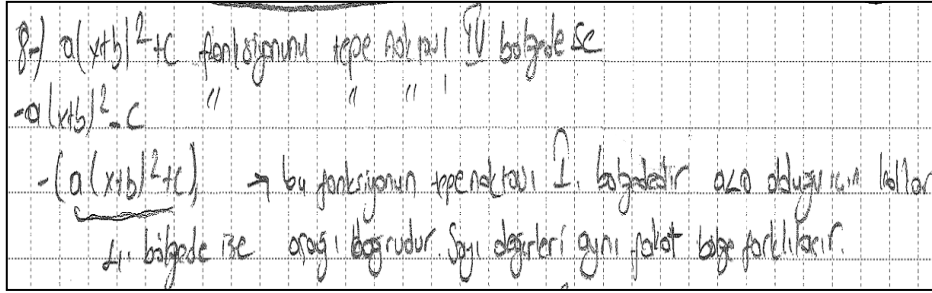 8-) a(x+b)²+c fonksiyonunu tepe noktası IV bölgede ise
-a(x+b)²-c " " " 
-(a(x+b)²+c) → bu fonksiyonun tepe noktası I. bölgededir a<0 olduğu için kollar
4. bölgede ise aşağı doğrudur. Sayı değerleri aynı fakat bölge farklılaşır.